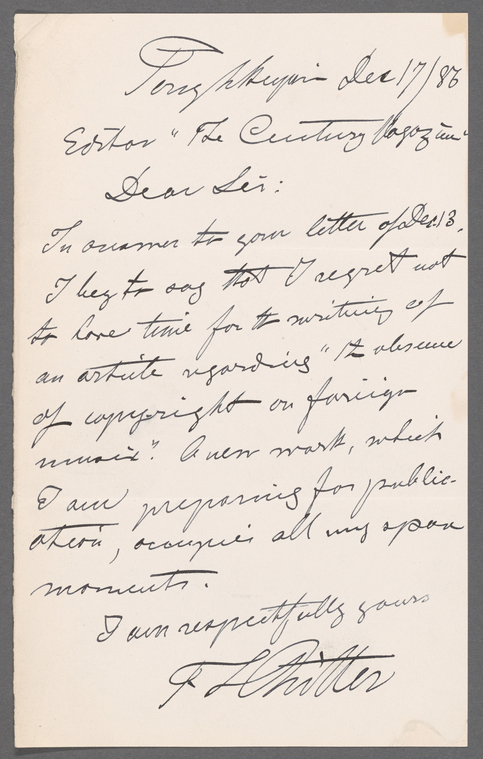 Poughkeepsie Dec 17/86
Editor "The Century Magazine"
Dear Sir:
In answer to your letter of Dec. 13.
I beg to say that I regret not
to have time for the writing of
an article regarding "the absence
of copy-right on foreign
music". A new work, which
I am preparing for public-
ation, occupies all my spare
moments.
I am respectfully yours
F L Ritter